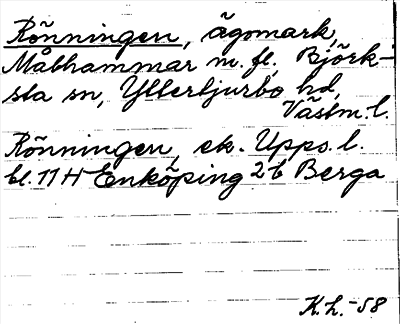 Rönningen, ägomark,
Målhammar m. fl. Björk-
sta sn, Yttertjurbo hd,
Västm. l.
Rönningen, ek. Upps. l.
bl. 11 H Enköping 2 b Berga
K.h. -58